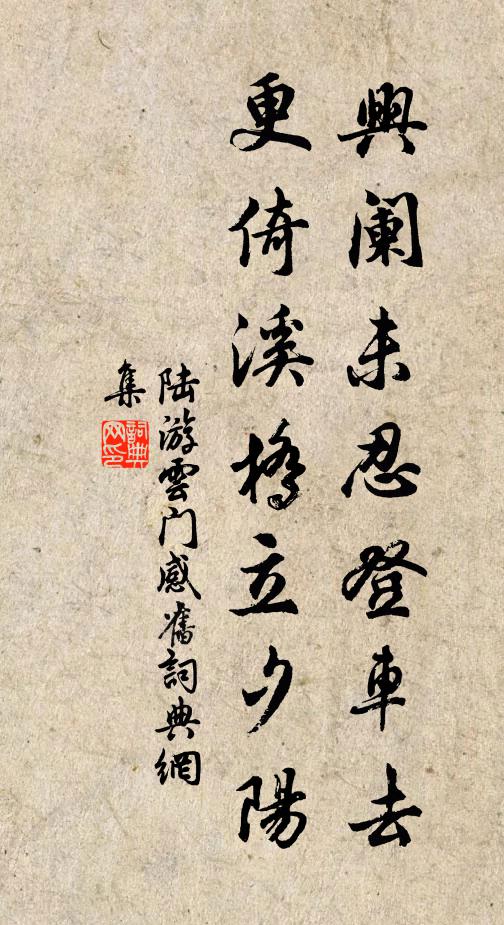 興阑未忍登車去
更倚溪橋立夕陽
陆游雲门感舊詞典網
集
詞典
网印